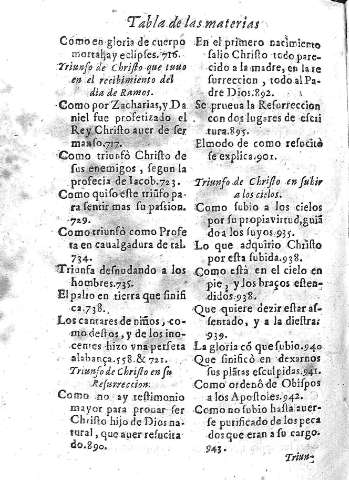 Tabla de las materias
Como en gloria de cuerpo
mortal ay eclipses. 716.
Triunfo de Christo que tuuo
en el recibimiento del
dia de Ramos.
Como por Zacharias, y Da
niel fue profetizado el
Rey Christo auer de ser
manso. 717.
Como triunfò Christo de
sus enemigos, segun la
profecia de Iacob. 723.
Como quiso este triunfo pa
ra sentir mas su passion.
729.
Como triunfò como Profe
ta en caualgadura de tal.
734.
Triunfa desnudando a los
hombres. 735.
El palio en tierra que sinifi
ca. 738.
Los cantares de niños, co-
mo destos, y de los ino-
centes hizo vna perfeta
alabança. 558. & 721.
Triunfo de Christo en su
Resurreccion.
Como no ay testimonio
mayor para prouar ser
Christo hijo de Dios na-
tural, que auer resucita
do. 890.
En el primero nacimiento
salio Christo todo pare-
cido a la madre, en la re
surreccion, todo al Pa-
dre Dios. 892.
Se prueua la Resurreccion
con dos lugares de escri
tura. 895.
El modo de como resucitò
se explica. 901.
Triunfo de Christo en subir
a los cielos.
Como subio a los cielos
por su propia virtud, guiã
do a los suyos. 935.
Lo que adquirio Christo
por esta subida. 938.
Como està en el cielo en
pie, y los braços esten-
didos. 938.
Que quiere dezir estar as-
sentado, y a la diestra?
939.
La gloria cõ que subio. 940
Que sinificò en dexarnos
sus plãtas esculpidas. 941.
Como ordenò de Obispos
a los Apostoles. 942.
Como no subio hasta auer-
se purificado de los peca
dos que eran a su cargo.
943.
Triun-